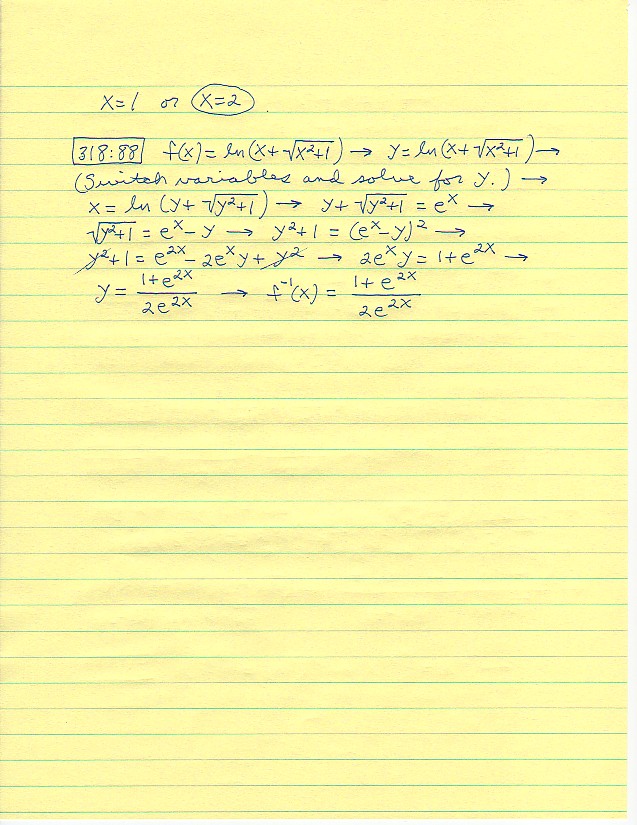 x=1 or x=2
318:88 f(x) = ln(x+√x²+1) → y = ln(x+√x²+1) →
(Switch variables and solve for y.) →
x = ln(y+√y²+1) → y+√y²+1 = eˣ →
√y²+1 = eˣ-y → y²+1 = (eˣ-y)² →
y²+1 = e²ˣ-2eˣy+y² → 2eˣy = 1+e²ˣ →
y = (1+e²ˣ)/(2e²ˣ) → f⁻¹(x) = (1+e²ˣ)/(2e²ˣ)